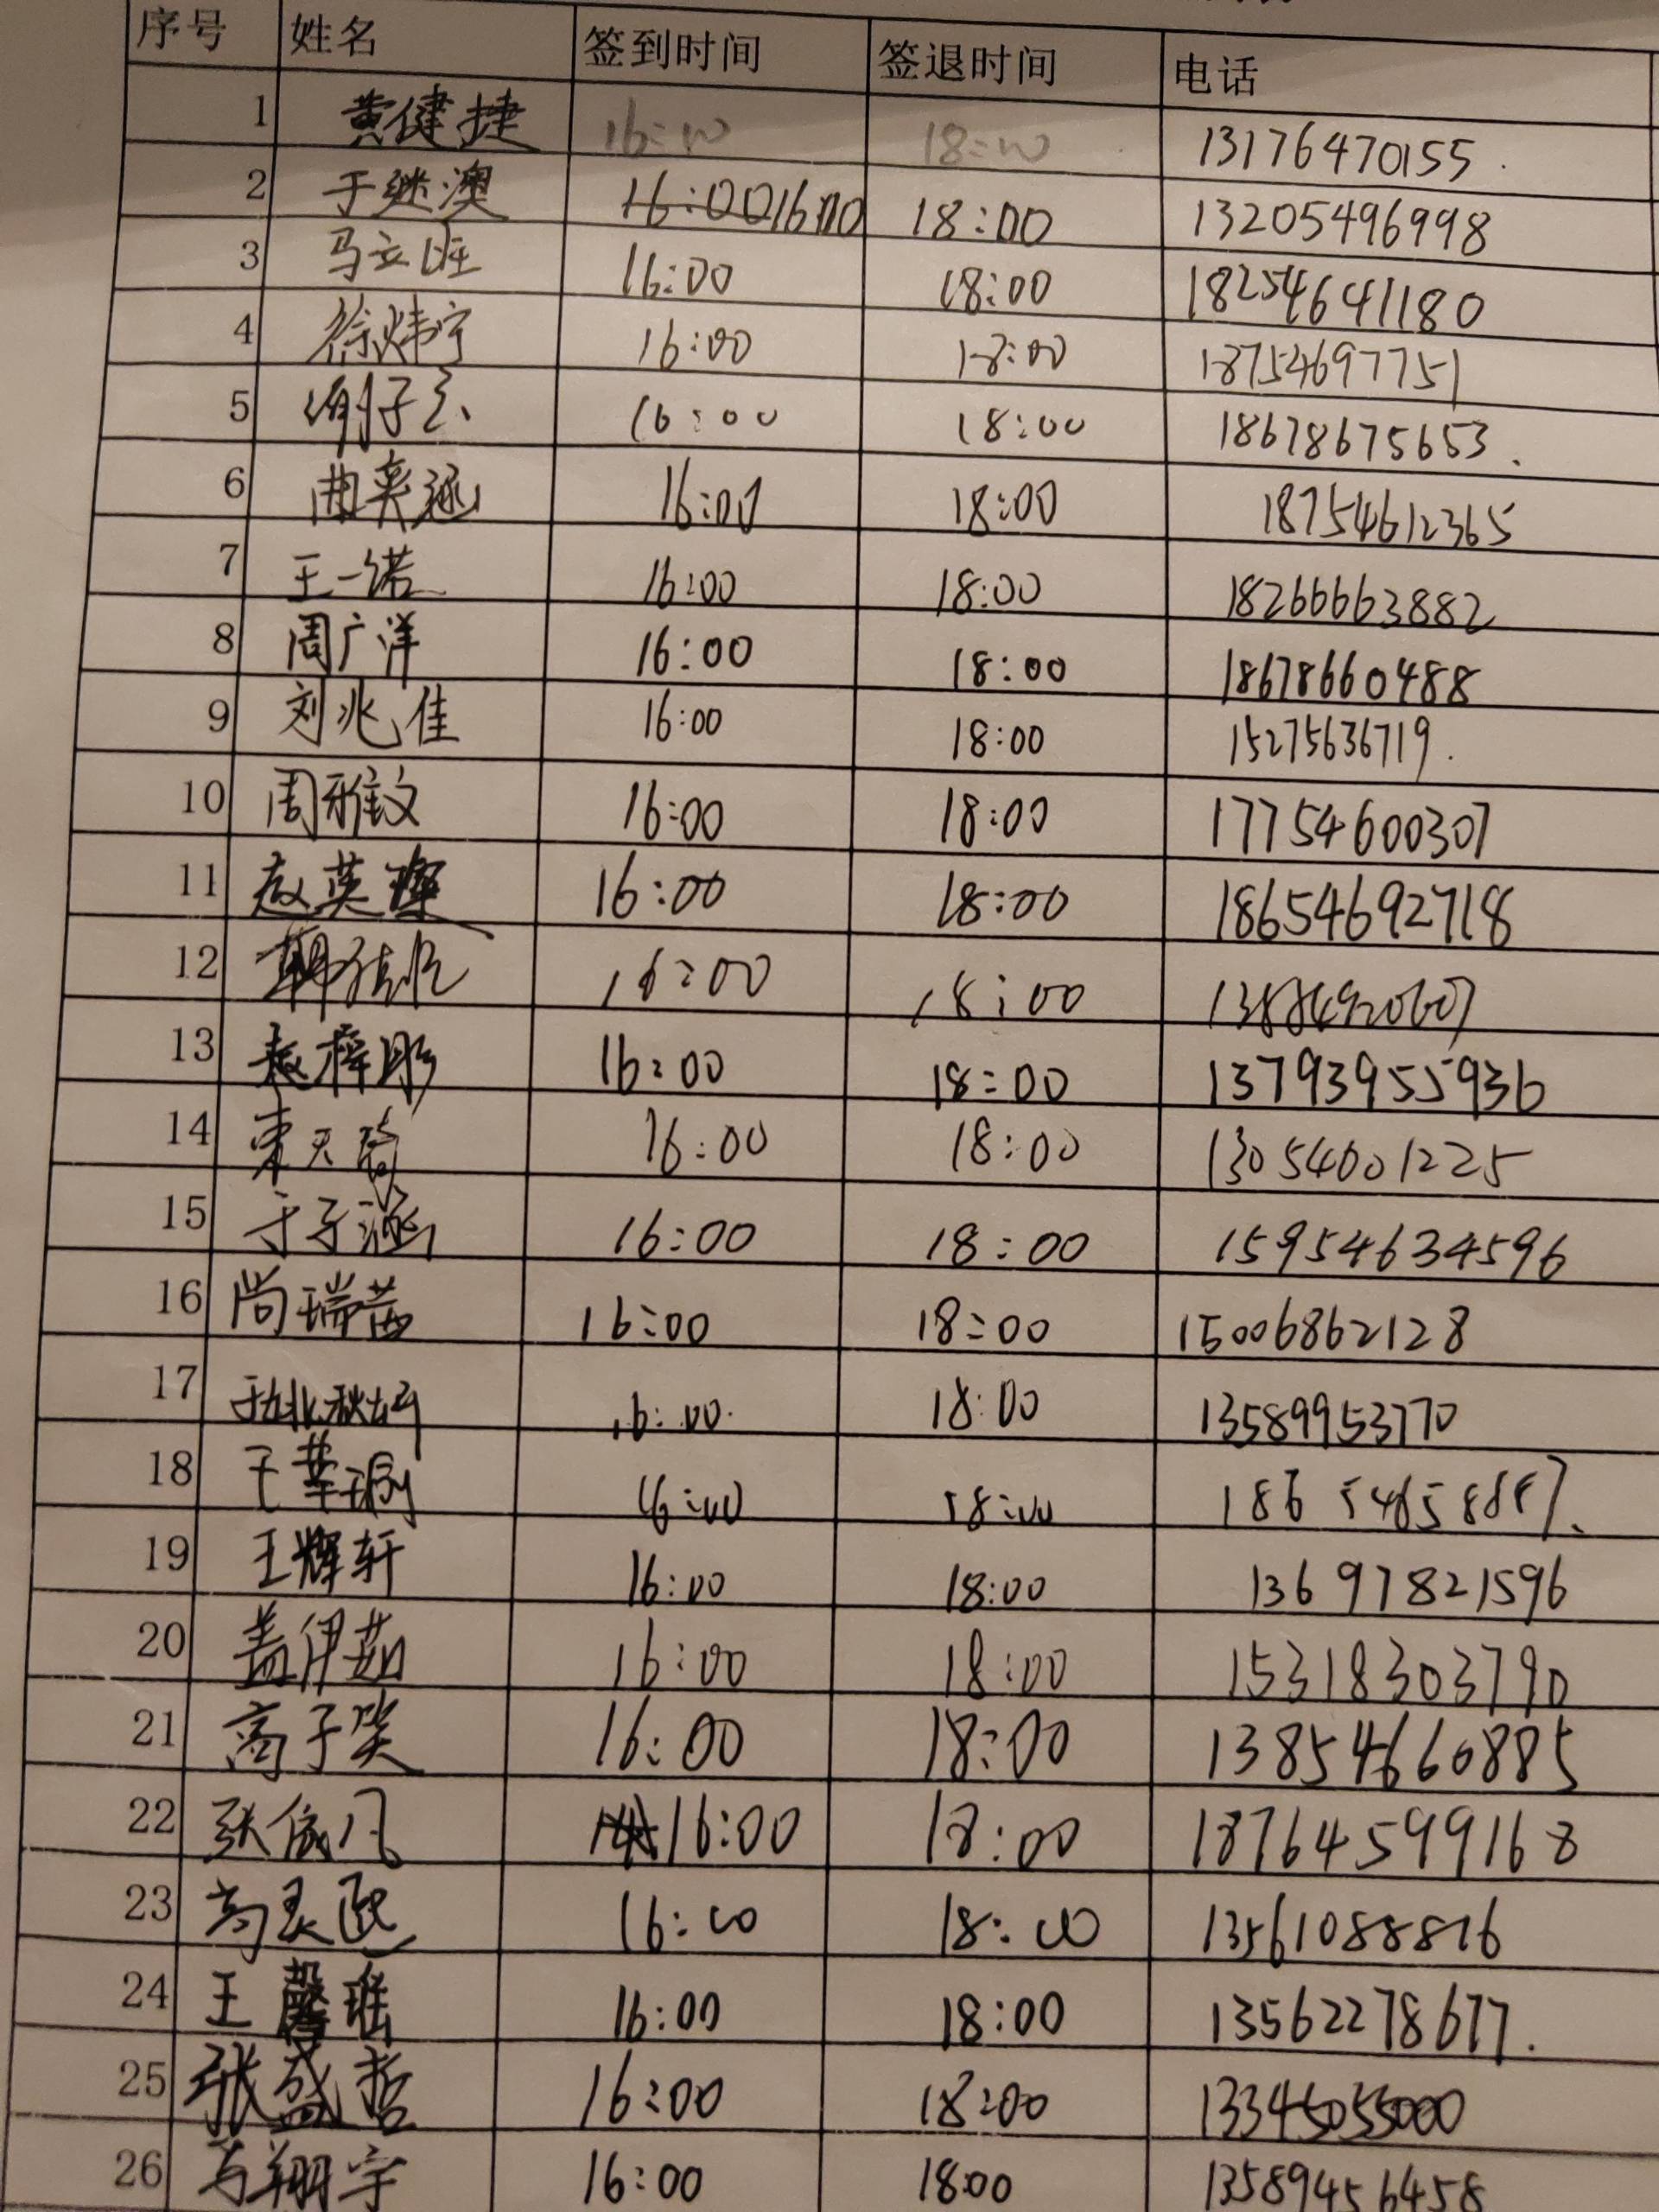 序号 姓名 签到时间 签退时间 电话
1 黄健捷 16:00 18:00 13176470155
2 于继澳 16:00 16:00 18:00 13205496998
3 马立旺 16:00 18:00 18254641180
4 徐炜宁 16:00 18:00 18754697751
5 16:00 18:00 18678675653
6 曲奕涵 16:00 18:00 18754612365
7 王一诺 16:00 18:00 18266663882
8 周广洋 16:00 18:00 18678660488
9 刘兆佳 16:00 18:00 15275636719
10 周雅文 16:00 18:00 17754600307
11 赵英璨 16:00 18:00 18654692718
12 16:00 18:00
13 赵梓彤 16:00 18:00 13793955936
14 16:00 18:00 13054001225
15 于子涵 16:00 18:00 15954634596
16 尚瑞茜 16:00 18:00 15006862128
17 16:00 18:00 13589953770
18 16:00 18:00
19 王辉轩 16:00 18:00 13697821596
20 盖伊茹 16:00 18:00 15318303790
21 高子笑 16:00 18:00 13854660885
22 张依凡 16:00 18:00 18764599168
23 高灵熙 16:00 18:00 13561088816
24 王馨瑶 16:00 18:00 13562278677
25 张盛哲 16:00 18:00 13345055000
26 翔宇 16:00 1800 13589456458